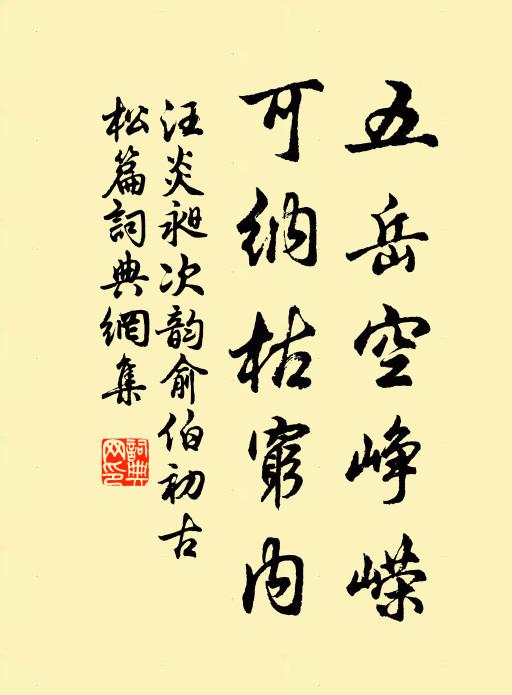 五岳空峥嵘
可纳枯穷内
汪炎昶次韵俞伯初古
松篇詞典網集
詞典
网印